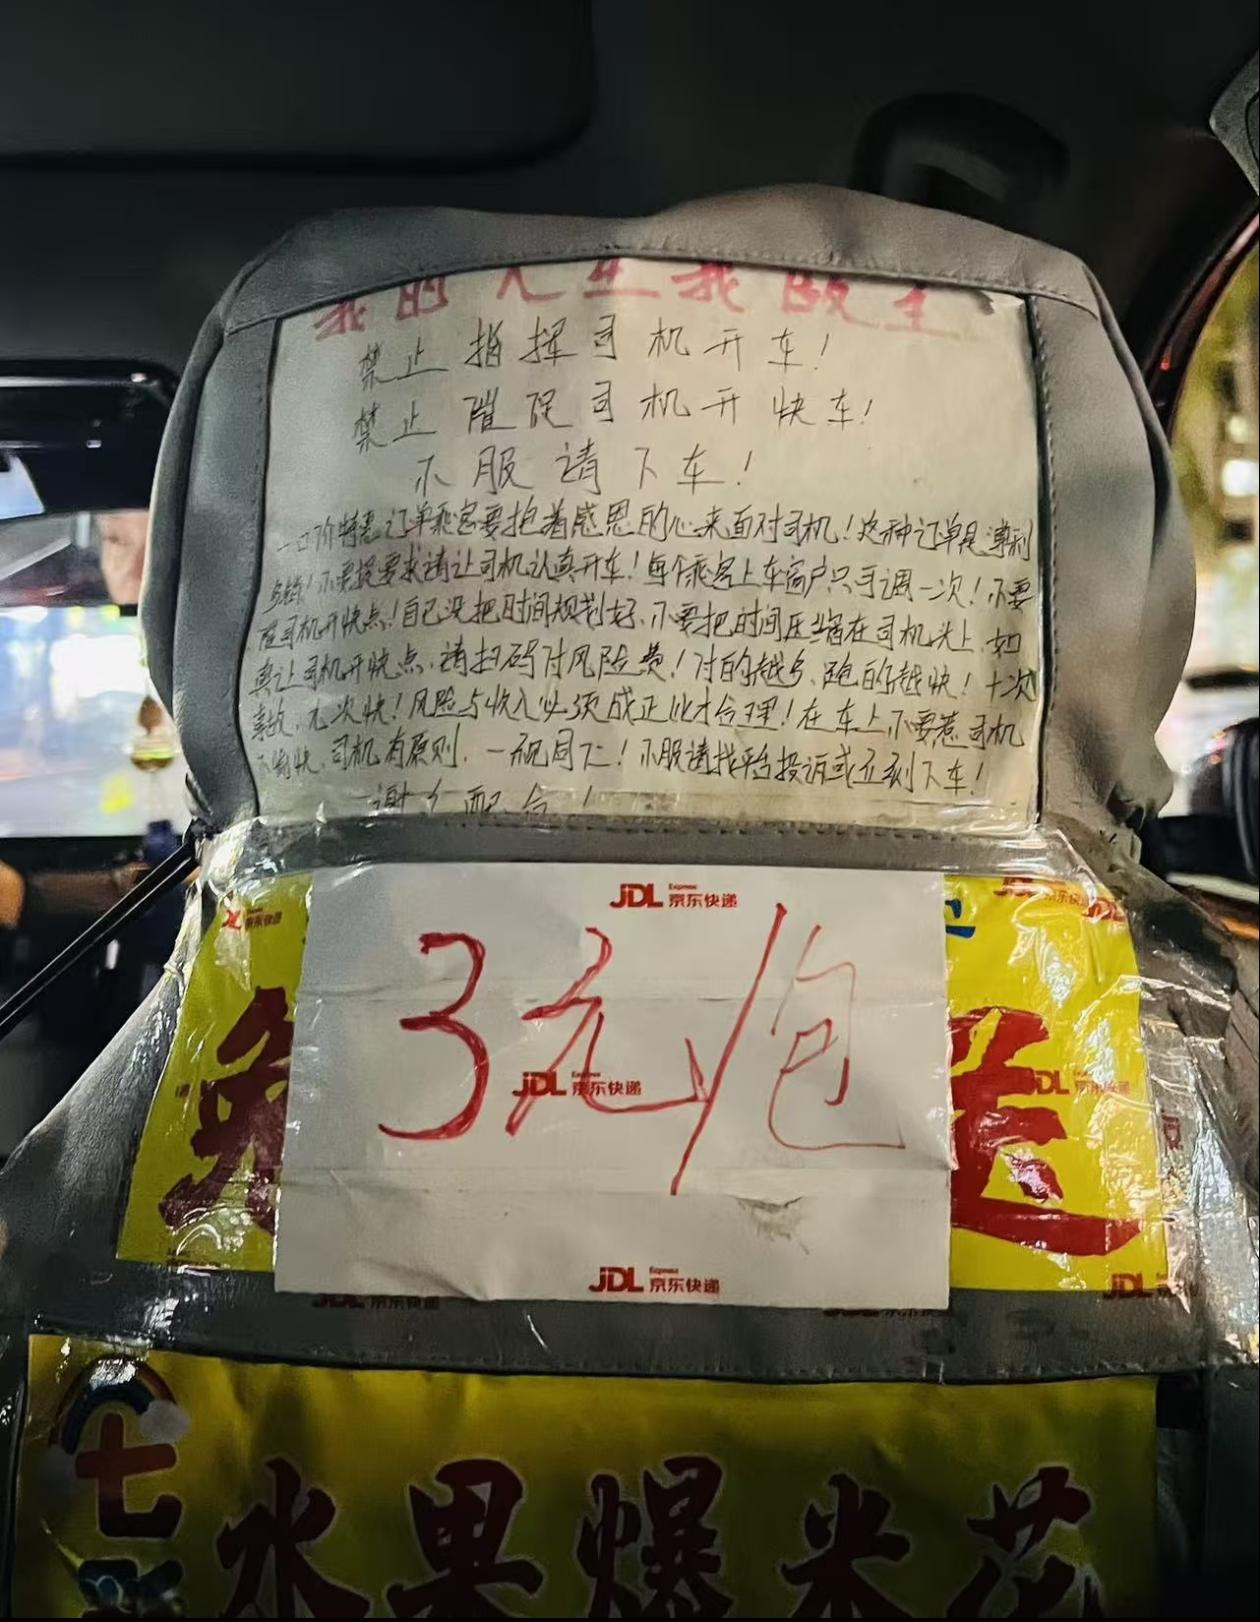 我的人生我做主
禁止指挥司机开车!
禁止催促司机开快车!
不服请下车!
一口价特惠订单乘客要抱着感恩的心来面对司机!这种订单是薄利
多销!不要提要求请让司机认真开车!每个乘客上车窗户只可调一次!不要
催司机开快点!自己没把时间规划好、不要把时间压缩在司机头上、如
真让司机开快点、请扫码付风险费!付的越多、跑的越快!十次
事故、九次快!风险与收入必须成正比才合理!在车上不要惹司机
不愉快、司机有原则、一视同仁!不服请找平台投诉或立刻下车!
谢谢配合!
JDL Express 京东快递
3元/包
JDL Express 京东快递
JDL Express 京东快递
免
送
七彩
水果爆米花